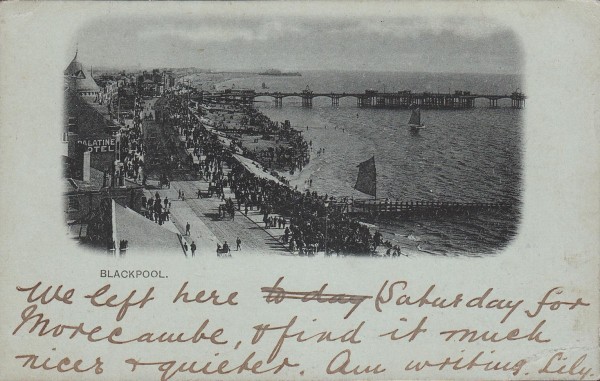 PALATINE
OTEL
BLACKPOOL.
We left here to day (Saturday for
Morecambe, & find it much
nicer & quieter. Am writing. Lily.